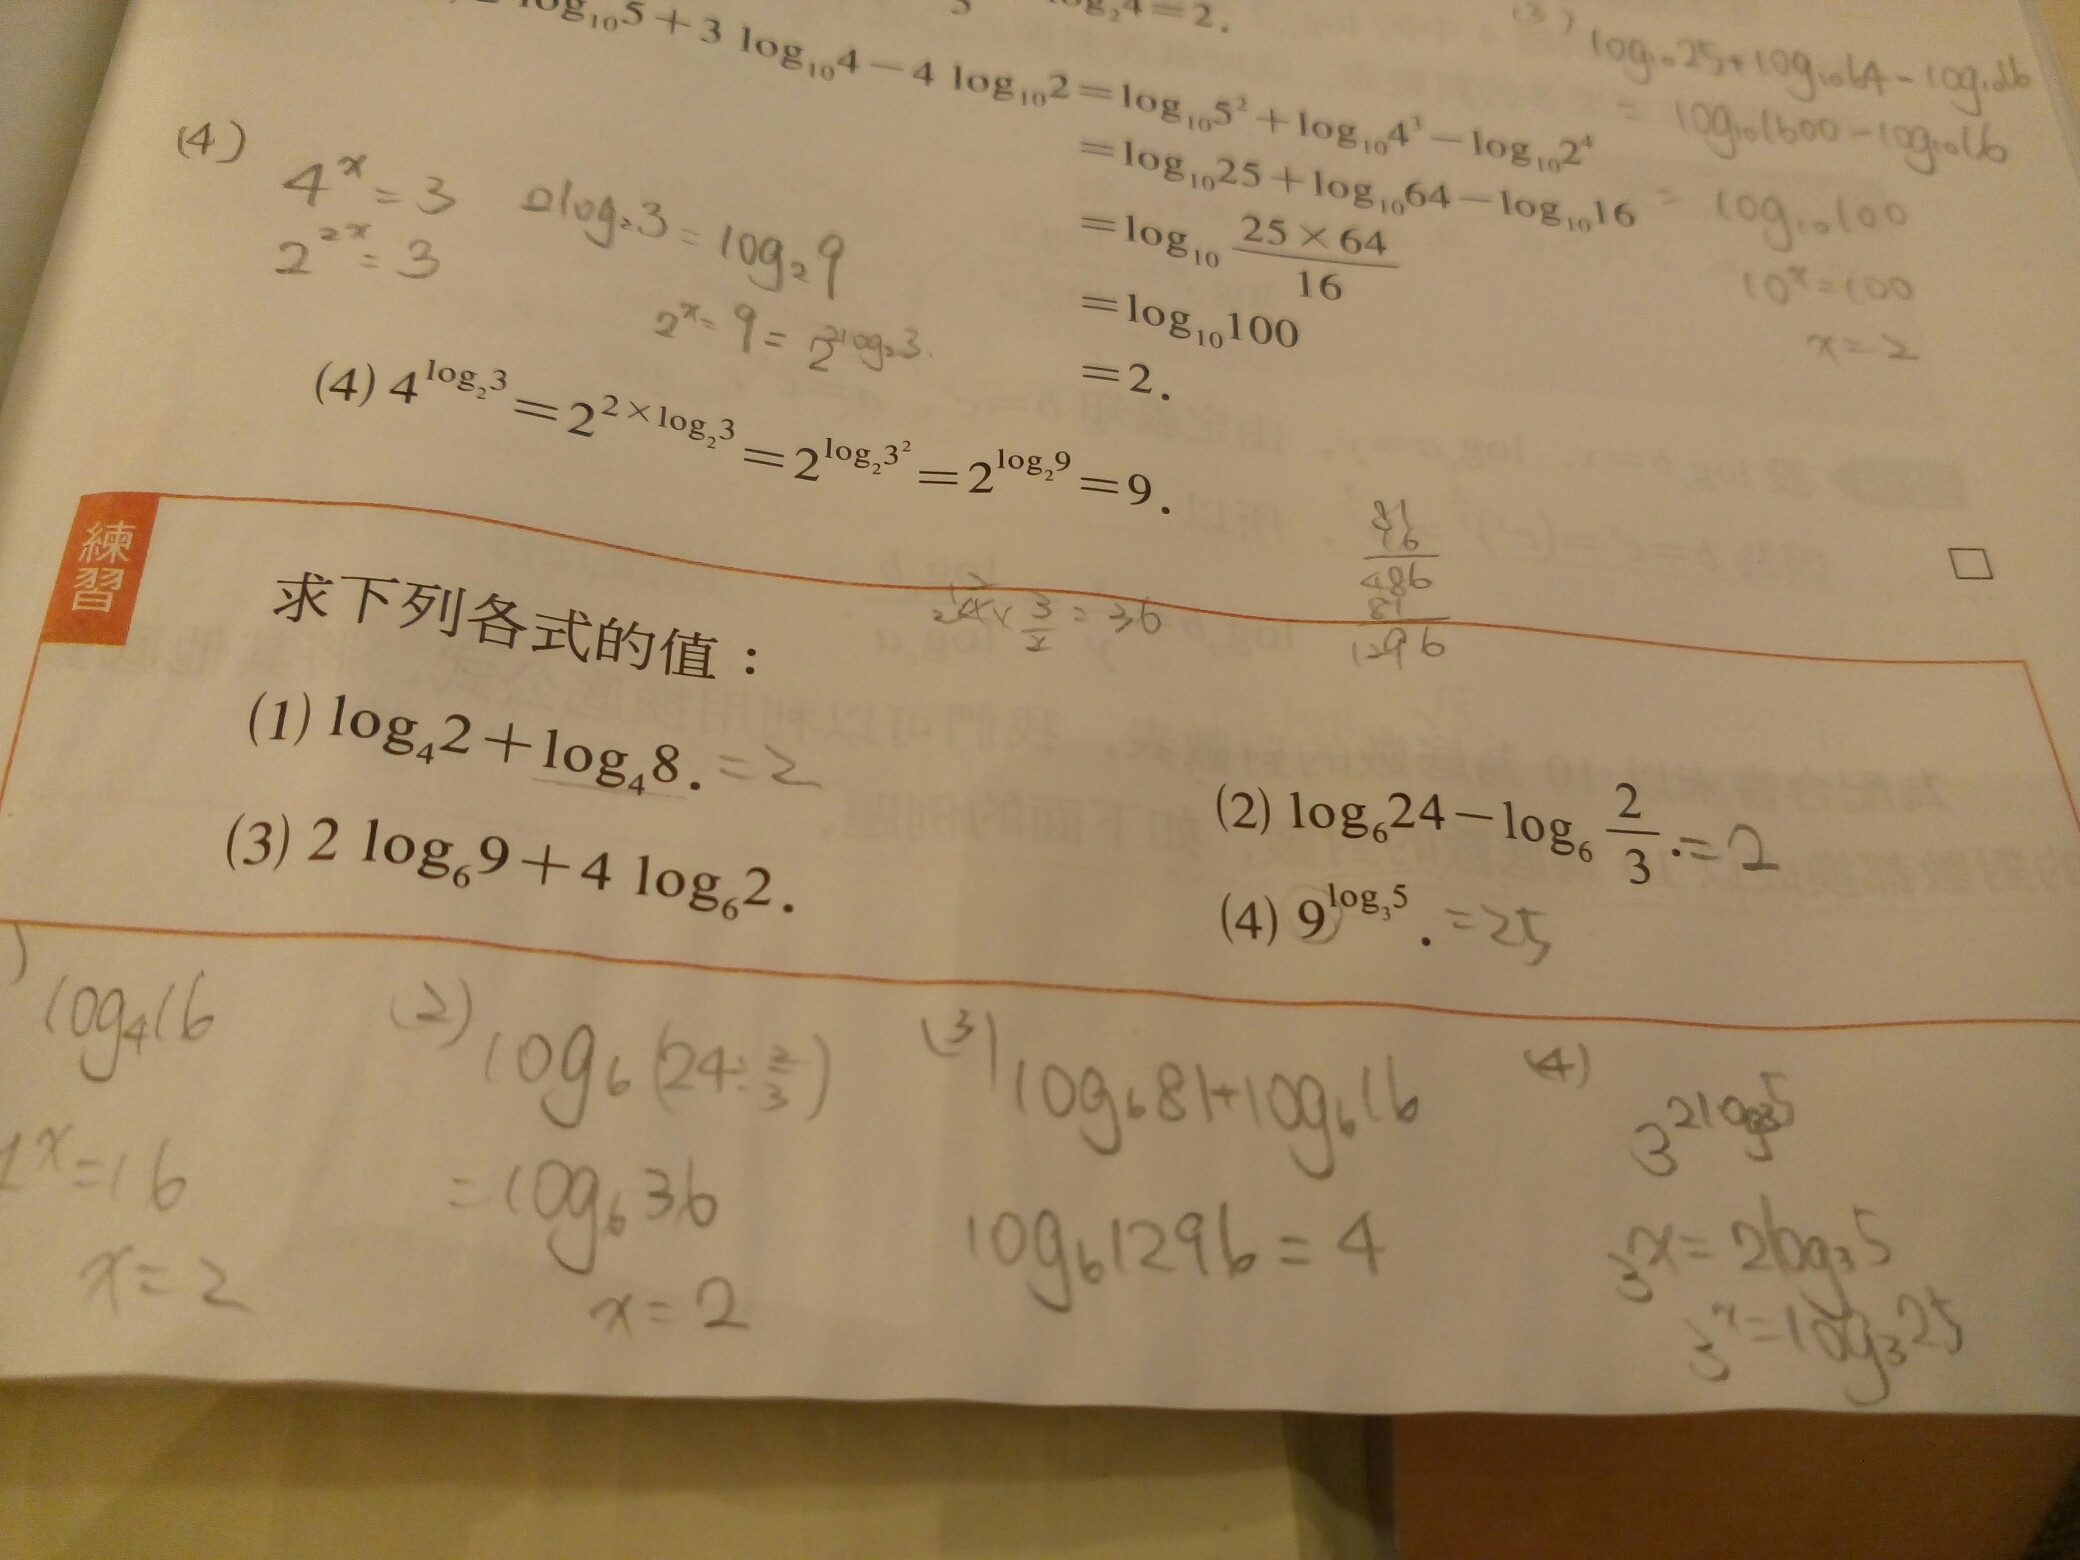 log₁₀5+3 log₁₀4−4 log₁₀2=log₁₀5²+log₁₀4³−log₁₀2⁴
=log₁₀25+log₁₀64−log₁₀16
=log₁₀ (25×64)/16
=log₁₀100
=2.
(3) log₁₀25+log₁₀64−log₁₀16
=log₁₀1600−log₁₀16
=log₁₀100
10ˣ=100
x=2
(4)
4ˣ=3
2²ˣ=3
2log₂3=log₂9
2ˣ=9=2^(2log₂3).
(4) 4^(log₂3)=2^(2×log₂3)=2^(log₂3²)=2^(log₂9)=9.
練習
求下列各式的值:
×3/2=36
81
16
486
81
1296
(1) log₄2+log₄8. =2
(2) log₆24−log₆ 2/3. =2
(3) 2 log₆9+4 log₆2.
(4) 9^(log₃5). =25
)
log₄16
ˣ=16
x=2
(2)
log₆(24÷2/3)
=log₆36
x=2
(3)
log₆81+log₆16
log₆1296=4
(4)
3^(2log₃5)
3ˣ=2log₃5
3ˣ=log₃25